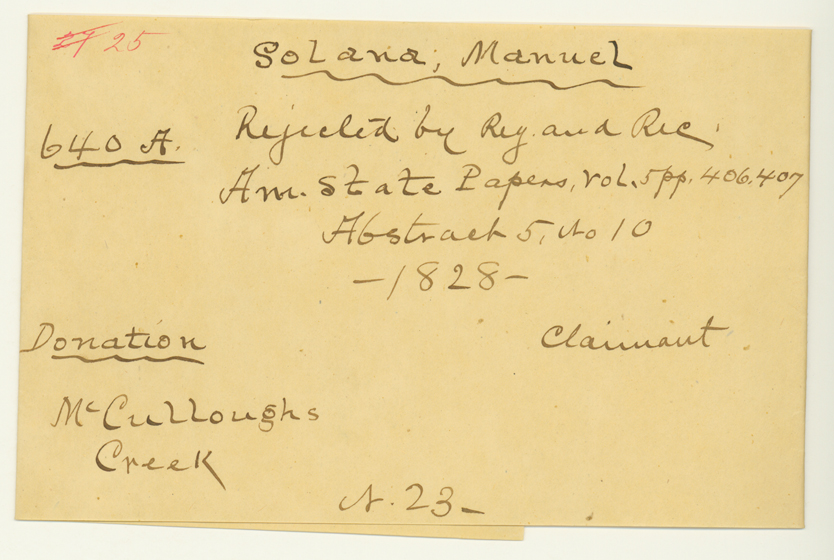 25
Solana, Manuel
640 A.
Rejected by Reg. and Rec.
Am. State Papers, Vol. 5 pp. 406, 407
Abstract 5, No 10
-1828-
Donation
Claimant
McCulloughs
Creek
N. 23-